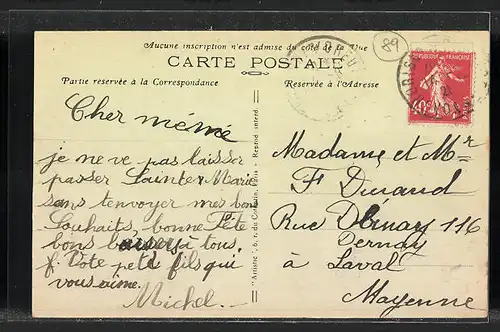 Aucune inscription n'est admise du côté de la Vue
CARTE POSTALE
Partie reservée à la Correspondance
Reservée à l'Adresse
89
REPUBLIQUE FRANÇAISE
40c
Cher mémé
je ne ve pas laisser
passer Sainte Marie
sans tenvoyer mes bons
Souhaits, bonne Fête
bons baisers à tous.
f. Tote peti fils qui
vous aime.
Michel
"Artistic", 6, r. du Paris - Reprod. interd.
Madame et Mr
F Durand
Rue 116
Dernay
à Laval
Mayenne